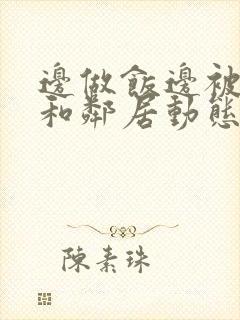 邊做飯邊被
和鄰居動態
陳素珠